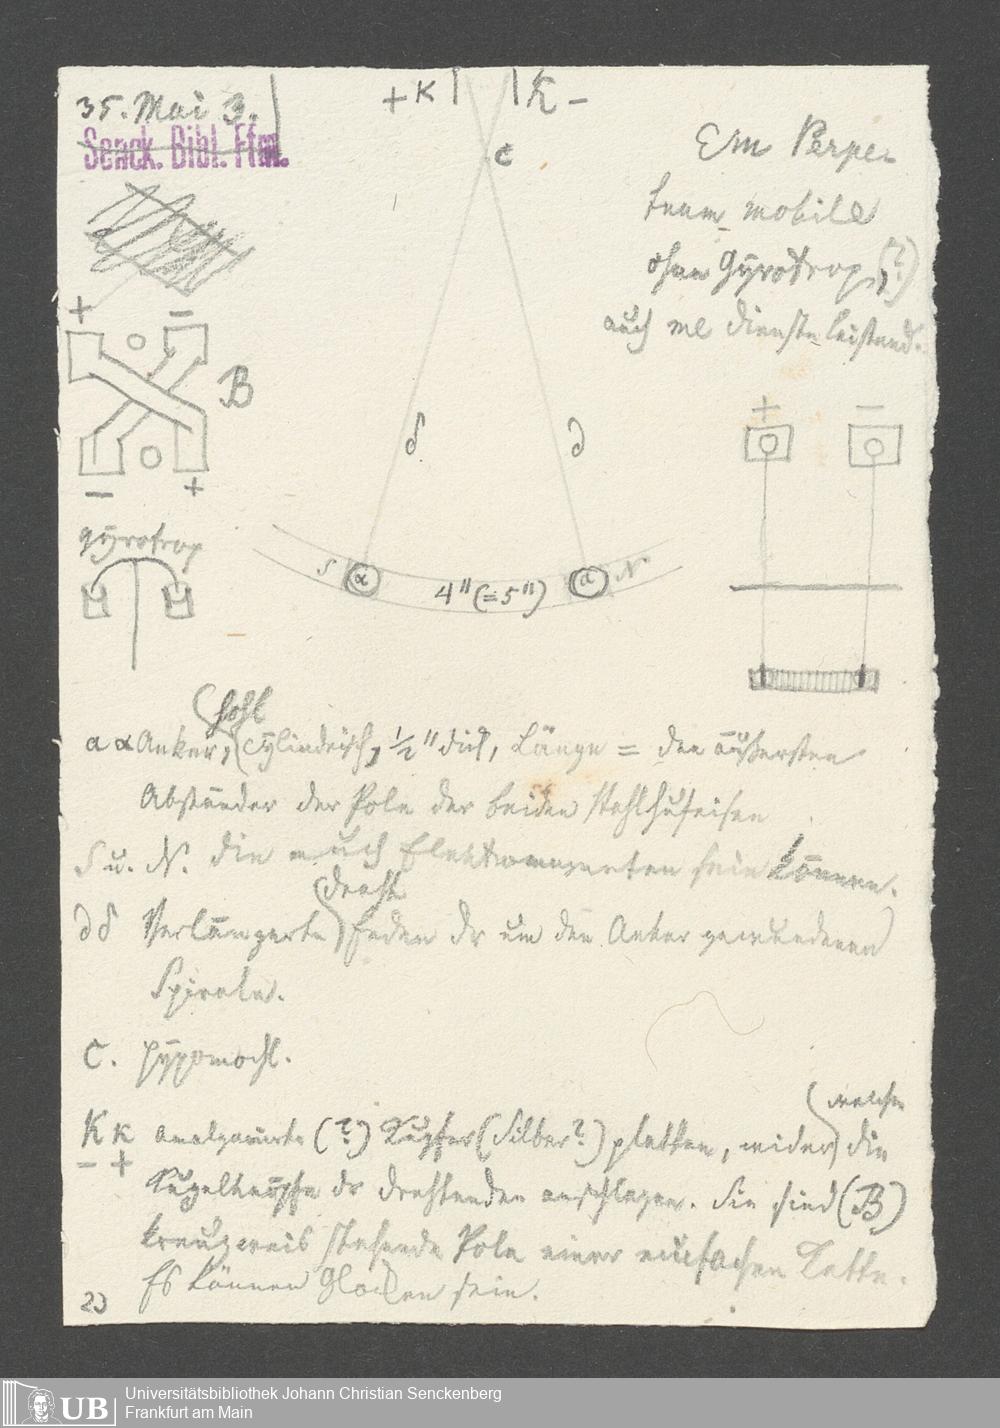 35. Mai 3.
Senck. Bibl. Ffm.
+ K K −
C
Em Perpe.
tuum mobile
ohne Gÿrotrop (?)
auch me dienste leistend.
+ −
B
− +
gÿrotrop
δ ∂
S α 4" (=5") a N
+ −
a α Anker, (hohl cÿlindrisch, 1/2" dick, Länge = den äußersten
Abständen der Pole der beiden Stahlhufeisen
S u. N. die auch Elektromagneten sein können.
∂ δ Verlängerte (draht Enden der um den Anker gewundenen
Spirale.
C. Hÿpomochl.
K K amalgamirte (?) Kupfer (Silber?) platten, wider (welche die
− + Kugelknöpfe der drahtenden anschlagen. Sie sind (B)
kreuzweis stehende Pole einer einfachen Kette.
Es können Glocken sein.
23
UB
Universitätsbibliothek Johann Christian Senckenberg
Frankfurt am Main